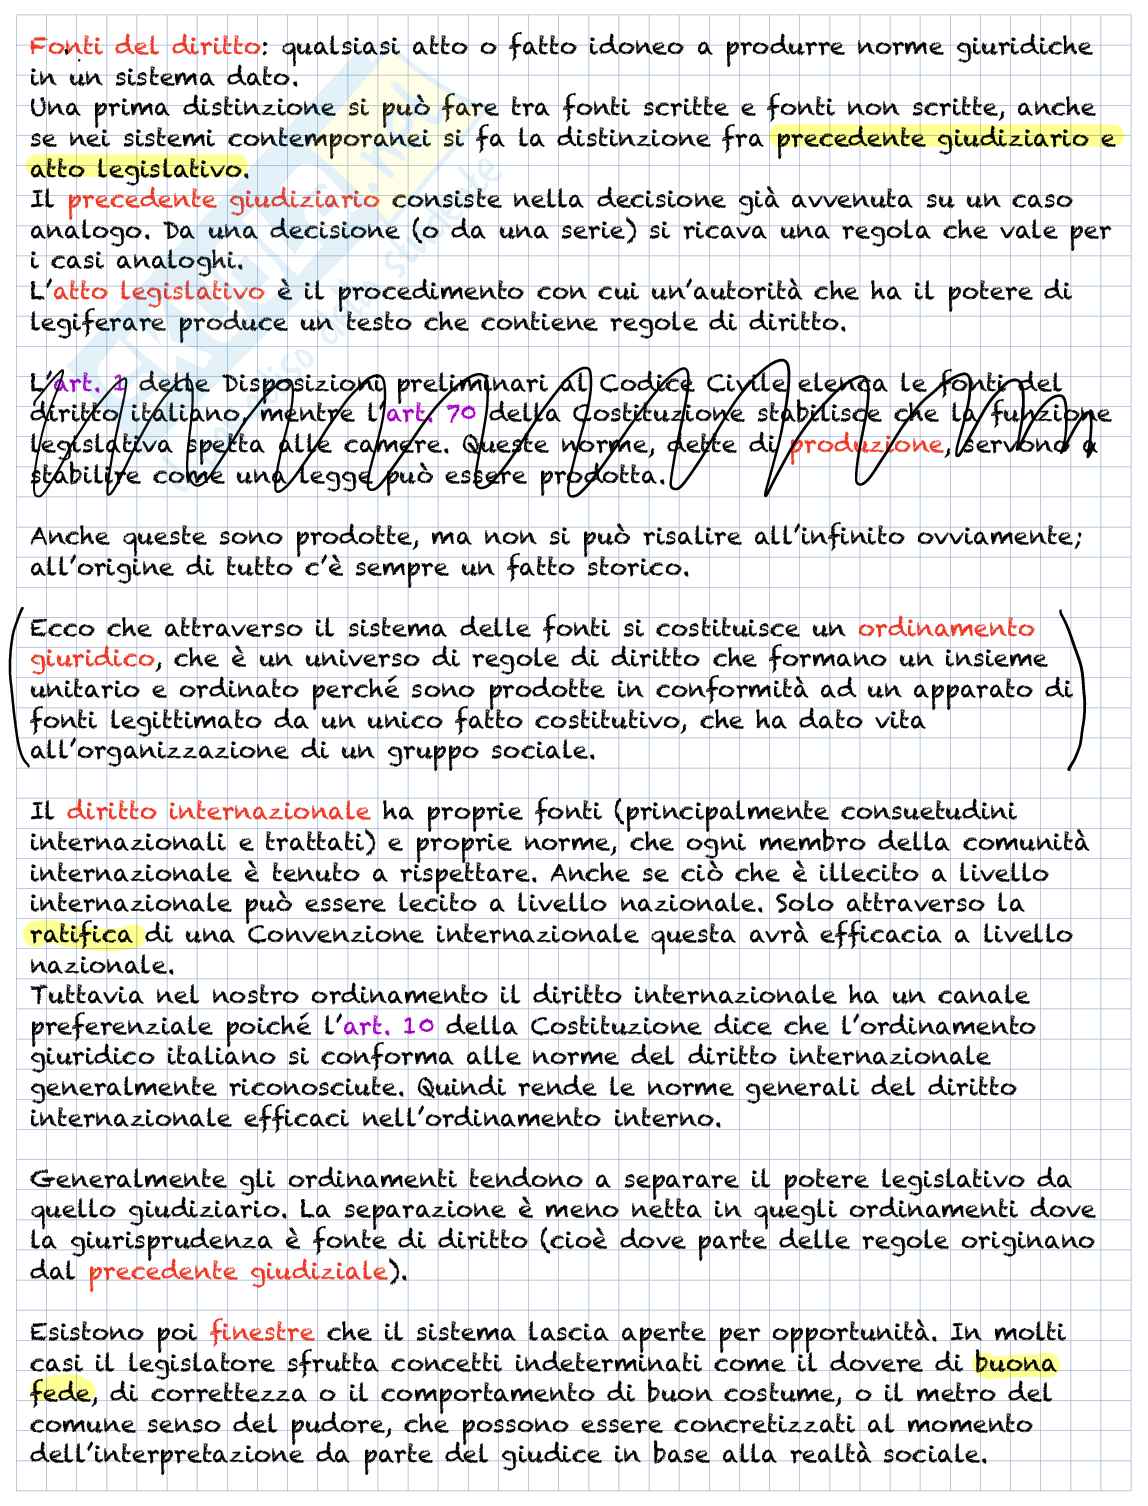 Fonti del diritto: qualsiasi atto o fatto idoneo a produrre norme giuridiche
in un sistema dato.
Una prima distinzione si può fare tra fonti scritte e fonti non scritte, anche
se nei sistemi contemporanei si fa la distinzione fra precedente giudiziario e
atto legislativo.
Il precedente giudiziario consiste nella decisione già avvenuta su un caso
analogo. Da una decisione (o da una serie) si ricava una regola che vale per
i casi analoghi.
L'atto legislativo è il procedimento con cui un'autorità che ha il potere di
legiferare produce un testo che contiene regole di diritto.
L'art. 1 delle Disposizioni preliminari al Codice Civile elenca le fonti del
diritto italiano, mentre l'art. 70 della Costituzione stabilisce che la funzione
legislativa spetta alle camere. Queste norme, dette di produzione, servono a
stabilire come una legge può essere prodotta.
Anche queste sono prodotte, ma non si può risalire all'infinito ovviamente;
all'origine di tutto c'è sempre un fatto storico.
Ecco che attraverso il sistema delle fonti si costituisce un ordinamento
giuridico, che è un universo di regole di diritto che formano un insieme
unitario e ordinato perché sono prodotte in conformità ad un apparato di
fonti legittimato da un unico fatto costitutivo, che ha dato vita
all'organizzazione di un gruppo sociale.
Il diritto internazionale ha proprie fonti (principalmente consuetudini
internazionali e trattati) e proprie norme, che ogni membro della comunità
internazionale è tenuto a rispettare. Anche se ciò che è illecito a livello
internazionale può essere lecito a livello nazionale. Solo attraverso la
ratifica di una Convenzione internazionale questa avrà efficacia a livello
nazionale.
Tuttavia nel nostro ordinamento il diritto internazionale ha un canale
preferenziale poiché l'art. 10 della Costituzione dice che l'ordinamento
giuridico italiano si conforma alle norme del diritto internazionale
generalmente riconosciute. Quindi rende le norme generali del diritto
internazionale efficaci nell'ordinamento interno.
Generalmente gli ordinamenti tendono a separare il potere legislativo da
quello giudiziario. La separazione è meno netta in quegli ordinamenti dove
la giurisprudenza è fonte di diritto (cioè dove parte delle regole originano
dal precedente giudiziale).
Esistono poi finestre che il sistema lascia aperte per opportunità. In molti
casi il legislatore sfrutta concetti indeterminati come il dovere di buona
fede, di correttezza o il comportamento di buon costume, o il metro del
comune senso del pudore, che possono essere concretizzati al momento
dell'interpretazione da parte del giudice in base alla realtà sociale.